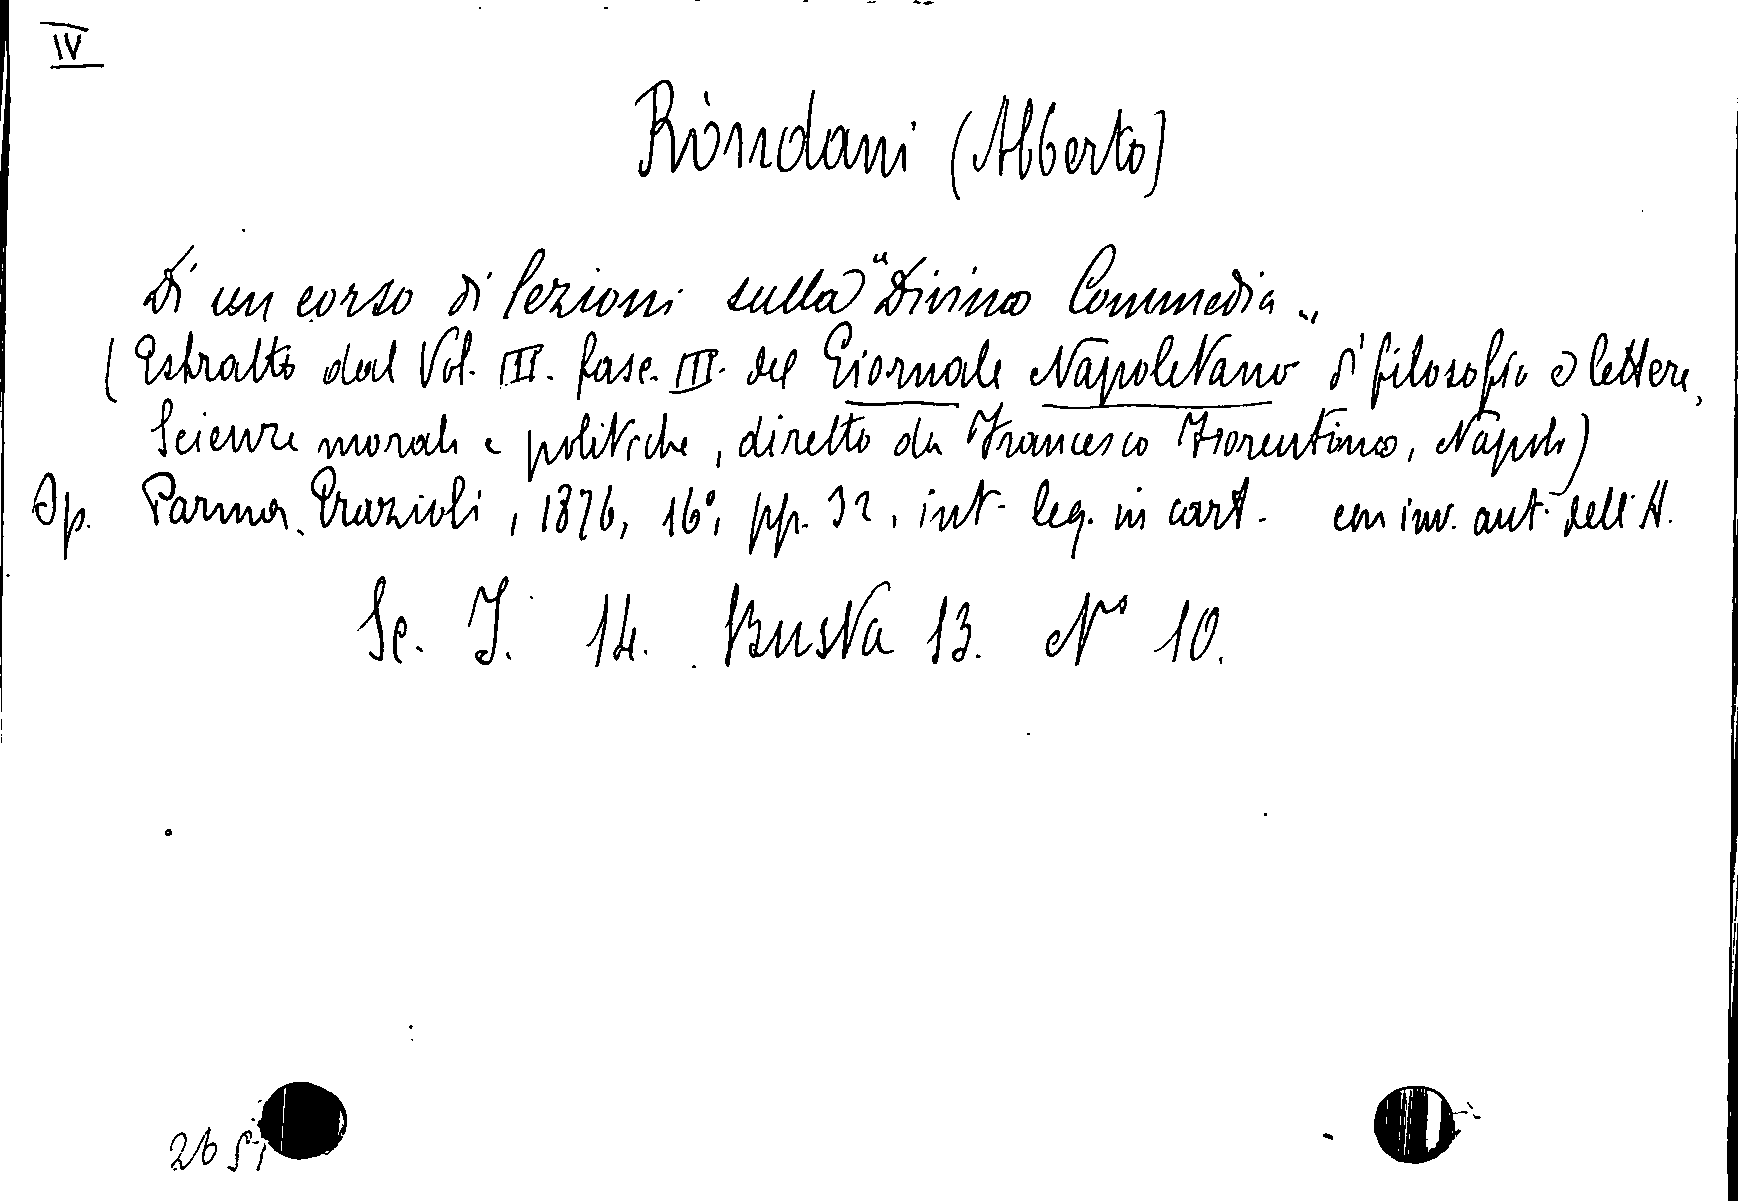 IV
Ròndani (Alberto)
Di un corso di lezioni sulla "Divina Commedia„
(Estratto dal Vol. III. fasc. III. del Giornale Napoletano di filosofia e lettere,
Scienze morali e politiche, diretto da Francesco Fiorentino, Napoli)
Op. Parma, Grazioli, 1876, 16°, pp. 32, int. leg. in cart. con inv. aut. dell'A.
Sc. I. 14. Busta 13. N° 10.